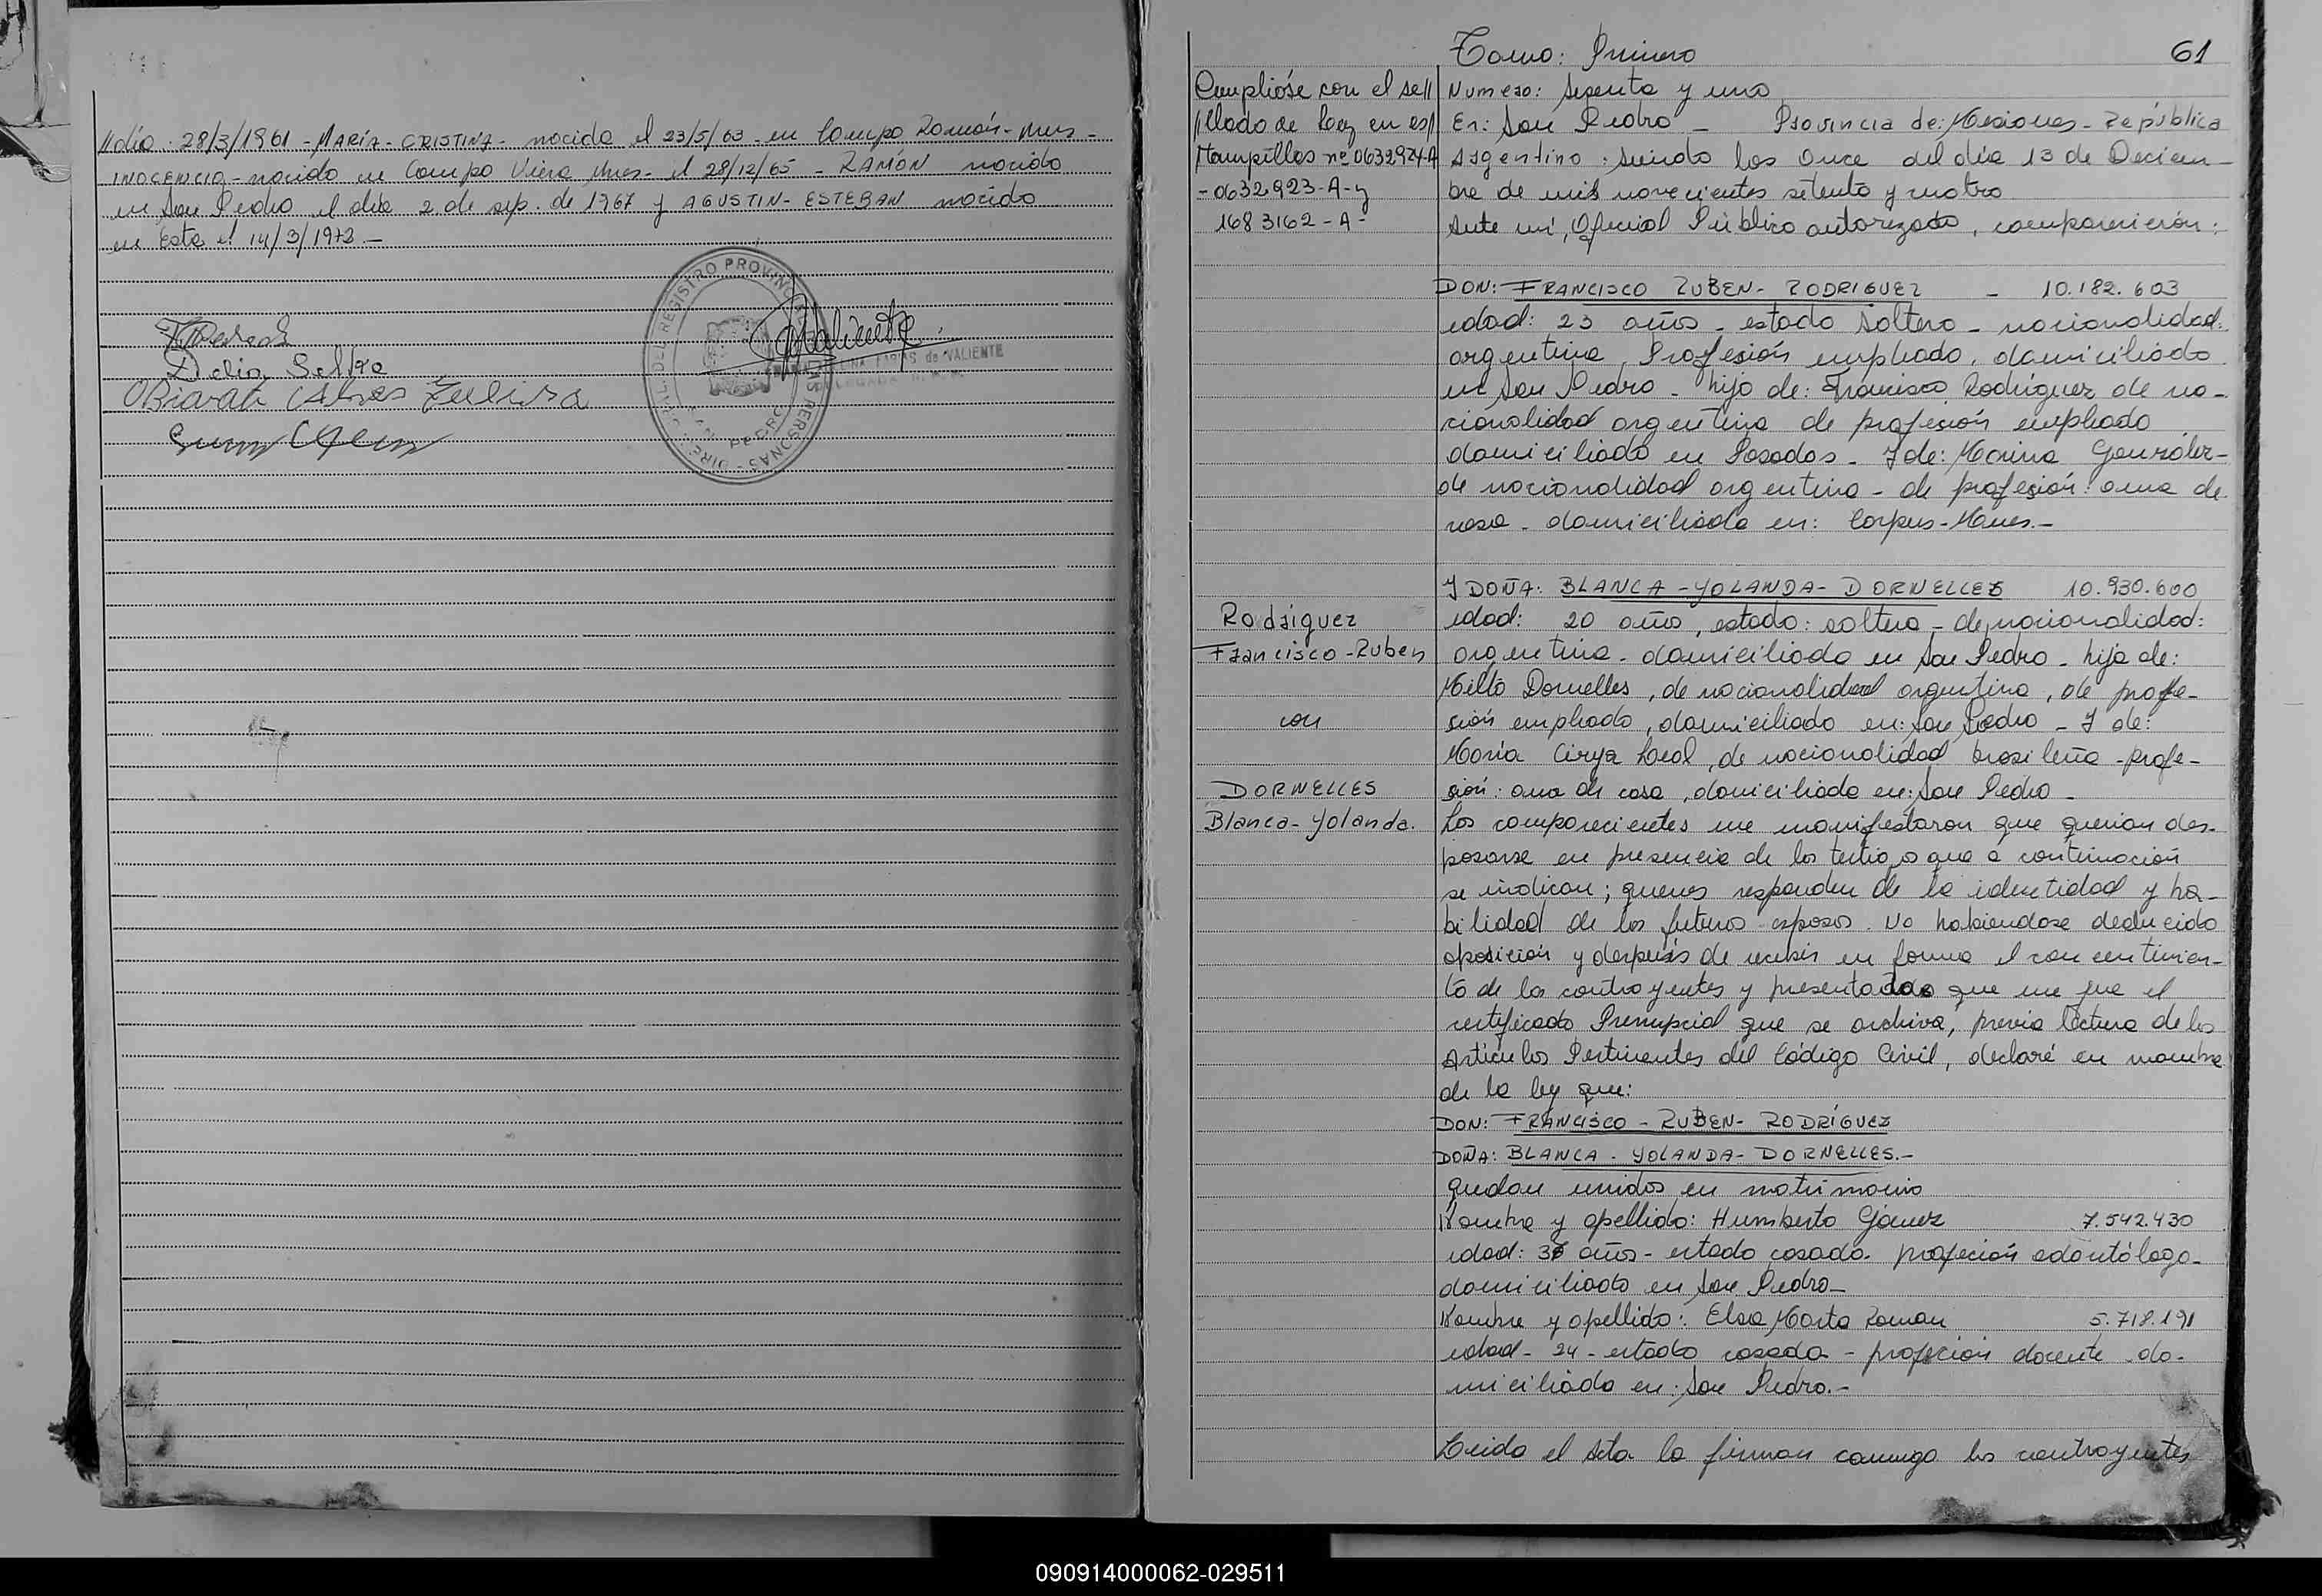 //día 28/3/1961 - MARÍA - CRISTINA - nacida el 23/5/63 - en Campo Ramón - Mnes -
INOCENCIO - nacido en Campo Viera Mnes - el 28/12/65 - RAMÓN nacido
en San Pedro el día 2 de sep. de 1967 y AGUSTIN - ESTEBAN nacido
en Esta el 14/3/1973 -
Delia Selva
REGISTRO PROVINCIAL DE LAS PERSONAS
SAN PEDRO
FARIAS de VALIENTE
Tomo: Primero
61
Cumplióse con el sell
//llado de Ley en es//
//tampillas nº 0632924-A
- 0632923 - A - y
1683162 - A -
Numero: Sesenta y uno
En: San Pedro - Provincia de: Misiones - República
Argentina: siendo las Once del día 13 de Diciem-
bre de mil novecientos setenta y cuatro
Ante mí, Oficial Público autorizado, comparecieron:
DON: FRANCISCO RUBEN - RODRIGUEZ - 10.182.603
edad: 23 años - estado soltero - nacionalidad:
argentina, Profesión empleado, domiciliado
en San Pedro - hijo de: Francisco Rodríguez de na-
cionalidad argentina de profesión empleado
domiciliado en Posadas - Y de: Marina González -
de nacionalidad argentina - de profesión: ama de
casa - domiciliada en: Corpus - Mnes. -
Y DOÑA: BLANCA - YOLANDA - DORNELLES 10.930.600
edad: 20 años, estado: soltera - de nacionalidad:
argentina - domiciliada en San Pedro - hija de:
Milto Dornelles, de nacionalidad argentina, de profe-
sión empleado, domiciliado en: San Pedro - Y de:
María Cirya Leal, de nacionalidad brasileña - profe-
sión: ama de casa, domiciliada en: San Pedro -
Rodríguez
Francisco - Ruben
con
DORNELLES
Blanca - Yolanda.
Los comparecientes me manifestaron que querian des-
posarse en presencia de los testigos que a continuación
se indican; quienes responden de la identidad y ha-
bilidad de los futuros esposos. No habiendose deducido
oposición y después de recibir en forma el consentimien-
to de los contrayentes y presentado que me fue el
certificado Prenupcial que se archiva, previa lectura de los
Artículos Pertinentes del Código Civil, declaré en nombre
de la ley que:
DON: FRANCISCO - RUBEN - RODRÍGUEZ
DOÑA: BLANCA - YOLANDA - DORNELLES. -
quedan unidos en matrimonio
Nombre y apellido: Humberto Gómez 7.542.430
edad: 37 años - estado casado - profeción odontólogo -
domiciliado en San Pedro -
Nombre y apellido: Elsa Marta Roman 5.718.191
edad - 24 - estado casada - profeción docente - do-
miciliada en: San Pedro. -
Leida el Acta la firman conmigo los contrayentes
090914000062-029511